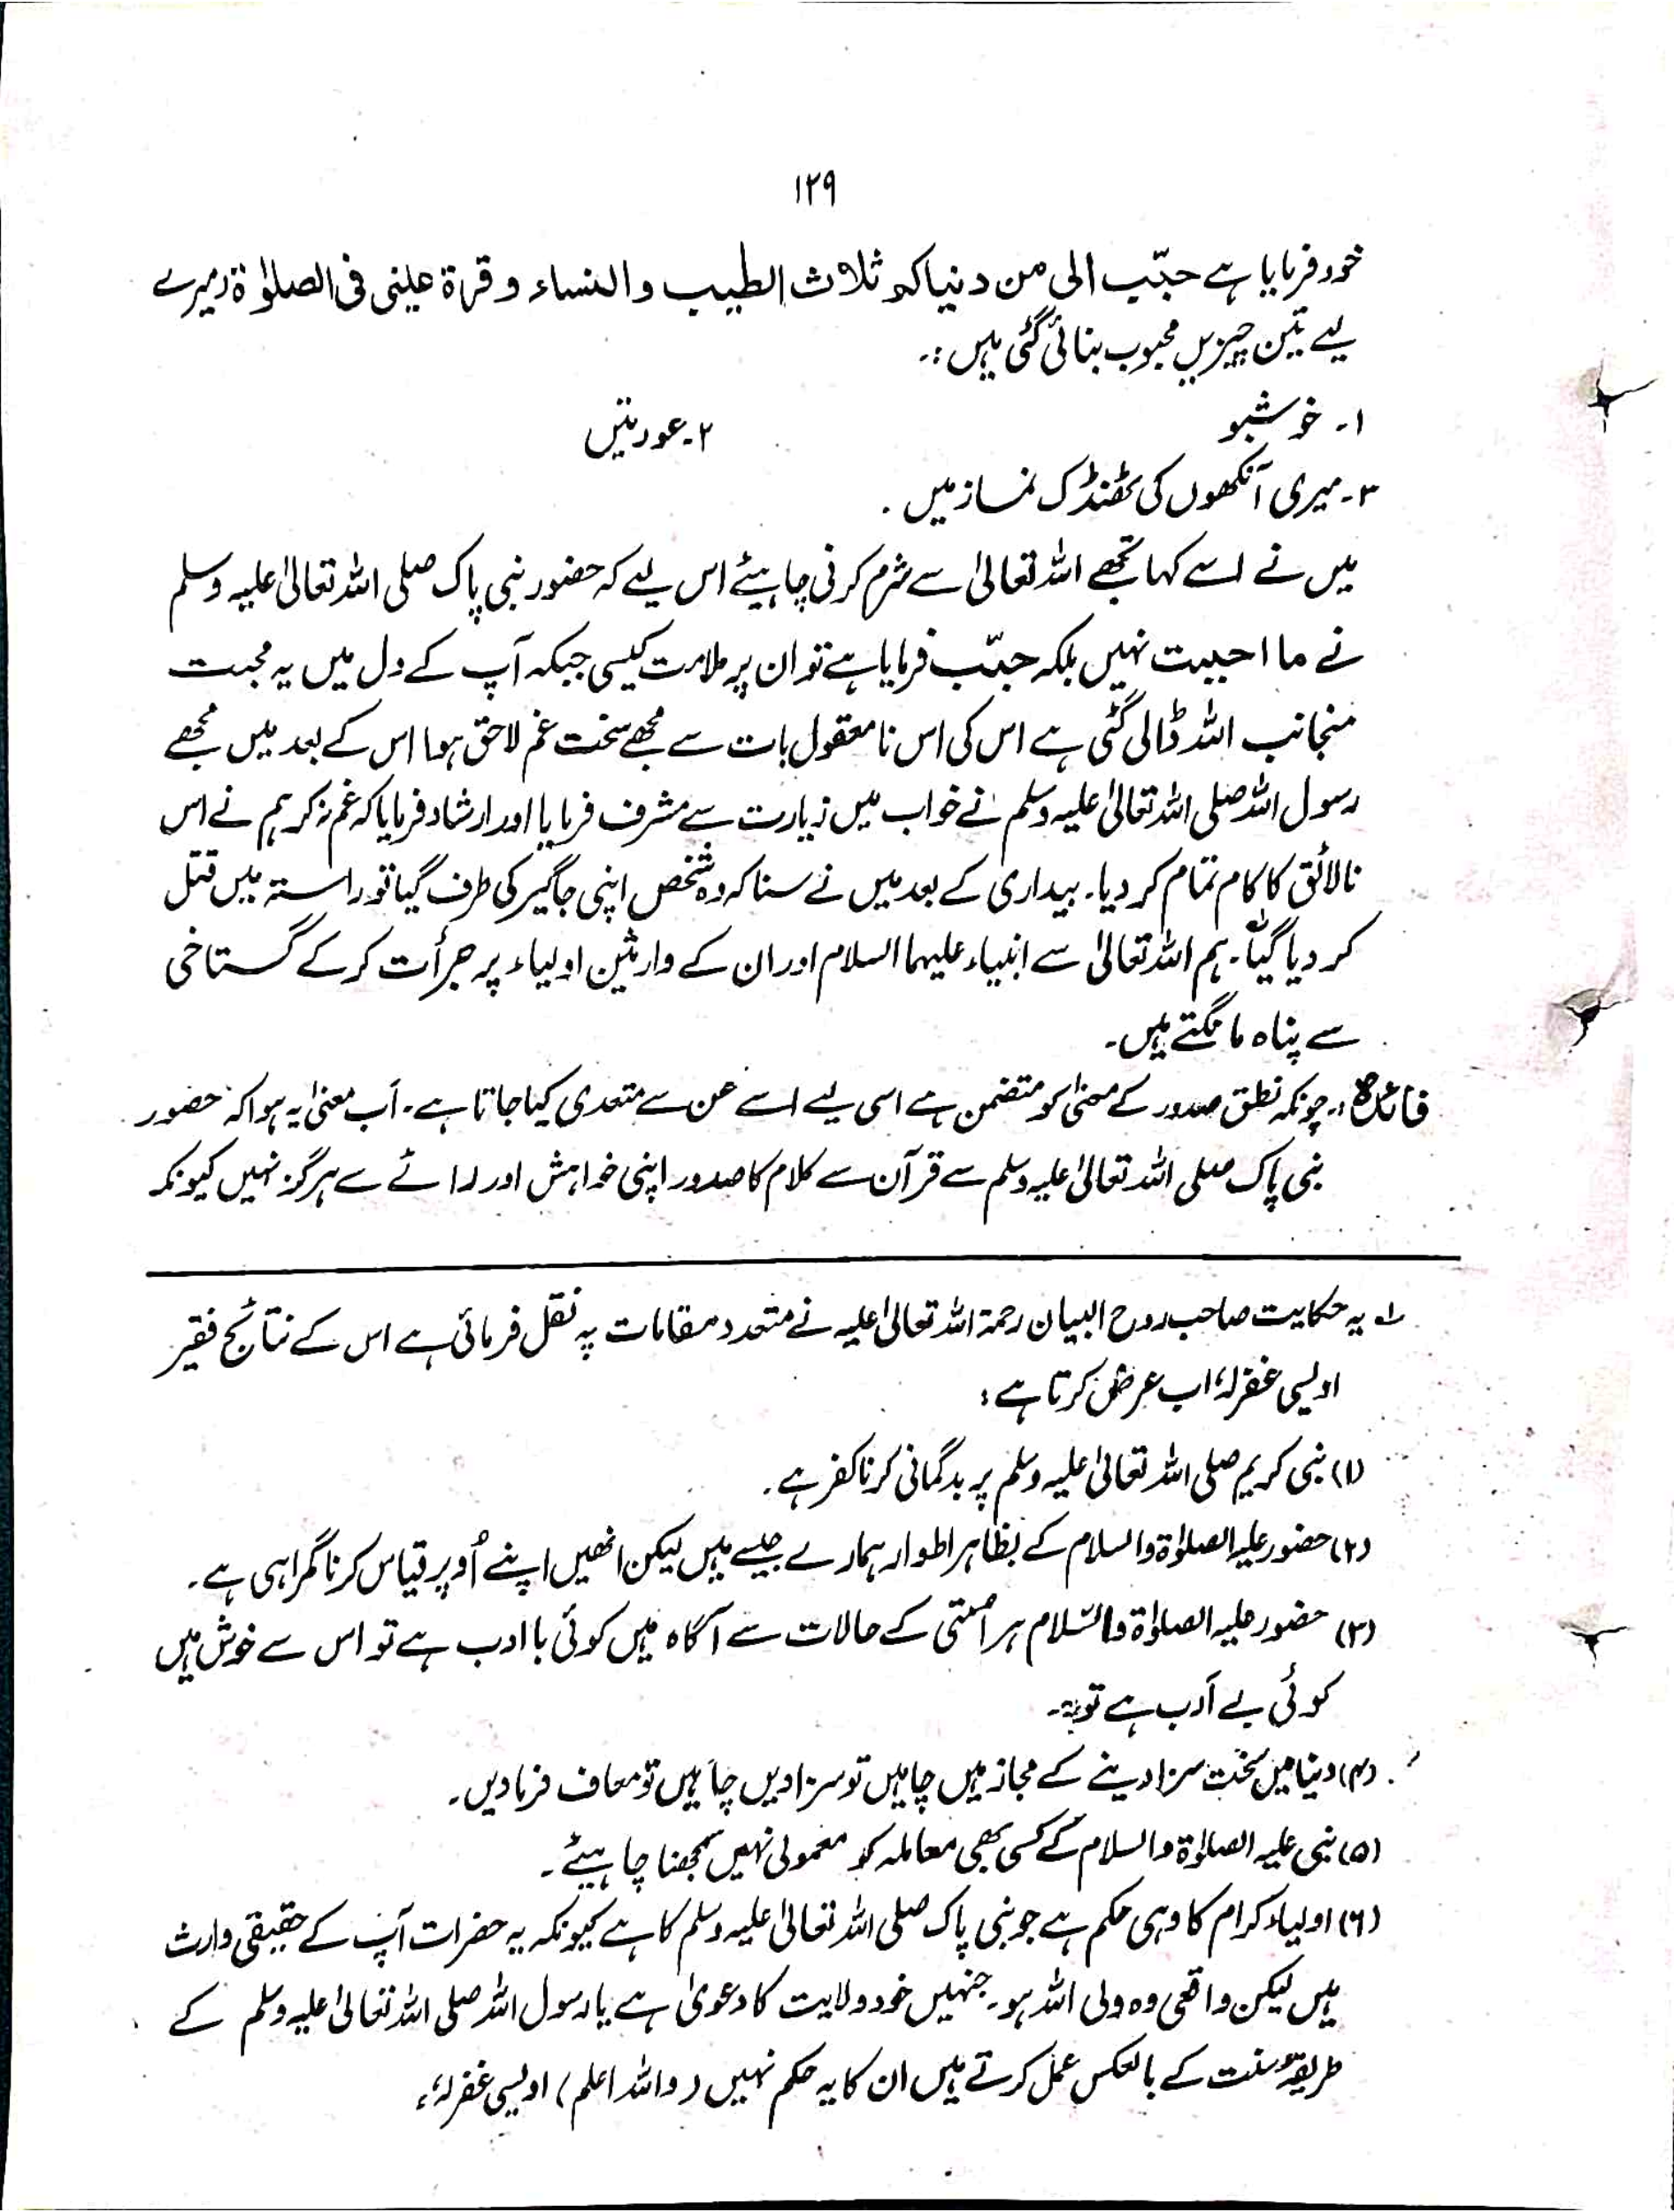 ۱۲۹
خود فرمایا ہے حبّب الی من دنیاکم ثلاث الطیب والنساء و قرۃ عینی فی الصلوٰۃ (میرے
لیے تین چیزیں محبوب بنائی گئی ہیں :۔
۱۔ خوشبو ۲۔ عورتیں
۳۔ میری آنکھوں کی ٹھنڈک نماز میں ۔
میں نے اسے کہا تجھے اللہ تعالیٰ سے شرم کرنی چاہیئے اس لیے کہ حضور نبی پاک صلی اللہ تعالیٰ علیہ وسلم
نے ما احببت نہیں بلکہ حبّب فرمایا ہے تو ان پر ملامت کیسی جبکہ آپ کے دل میں یہ محبت
منجانب اللہ ڈالی گئی ہے اس کی اس نامعقول بات سے مجھے سخت غم لاحق ہوا اس کے بعد میں مجھے
رسول اللہ صلی اللہ تعالیٰ علیہ وسلم نے خواب میں زیارت سے مشرف فرمایا اور ارشاد فرمایا کہ غم نہ کر ہم نے اس
نالائق کا کام تمام کر دیا۔ بیداری کے بعد میں نے سنا کہ وہ شخص اپنی جاگیر کی طرف گیا تو راستہ میں قتل
کر دیا گیا۔ ہم اللہ تعالیٰ سے انبیاء علیہما السلام اور ان کے وارثین اولیاء پر جرأت کرکے گستاخی
سے پناہ مانگتے ہیں۔
فائدہ :۔ چونکہ نطق صدور کے معنیٰ کو متضمن ہے اسی لیے اسے عن سے متعدی کیا جاتا ہے۔ اب معنیٰ یہ ہوا کہ حضور
نبی پاک صلی اللہ تعالیٰ علیہ وسلم سے قرآن سے کلام کا صدور اپنی خواہش اور رائے سے ہرگز نہیں کیونکہ
لہ یہ حکایت صاحب روح البیان رحمۃ اللہ تعالیٰ علیہ نے متعدد مقامات پہ نقل فرمائی ہے اس کے نتائج فقیر
اویسی غفرلہٗ اب عرض کرتا ہے :
(۱) نبی کریم صلی اللہ تعالیٰ علیہ وسلم پر بدگمانی کرنا کفر ہے ۔
(۲) حضور علیہ الصلوٰۃ والسلام کے بظاہر اطوار ہمارے جیسے ہیں لیکن انھیں اپنے اُوپر قیاس کرنا گمراہی ہے ۔
(۳) حضور علیہ الصلوٰۃ والسّلام ہر امتی کے حالات سے آگاہ ہیں کوئی با ادب ہے تو اس سے خوش ہیں
کوئی بے ادب ہے تو
(۴) دنیا میں سخت سزا دینے کے مجاز ہیں چاہیں تو سزا دیں چاہیں تو معاف فرما دیں ۔
(۵) نبی علیہ الصلوٰۃ والسلام کے کسی بھی معاملہ کو معمولی نہیں سمجھنا چاہیئے ۔
(۶) اولیاء کرام کا وہی حکم ہے جو نبی پاک صلی اللہ تعالیٰ علیہ وسلم کا ہے کیونکہ یہ حضرات آپ کے حقیقی وارث
ہیں لیکن واقعی وہ ولی اللہ ہو۔ جنہیں خود ولایت کا دعویٰ ہے یا رسول اللہ صلی اللہ تعالیٰ علیہ وسلم کے
طریقۂ سنت کے بالعکس عمل کرتے ہیں ان کا یہ حکم نہیں (واللہ اعلم) اویسی غفرلہٗ